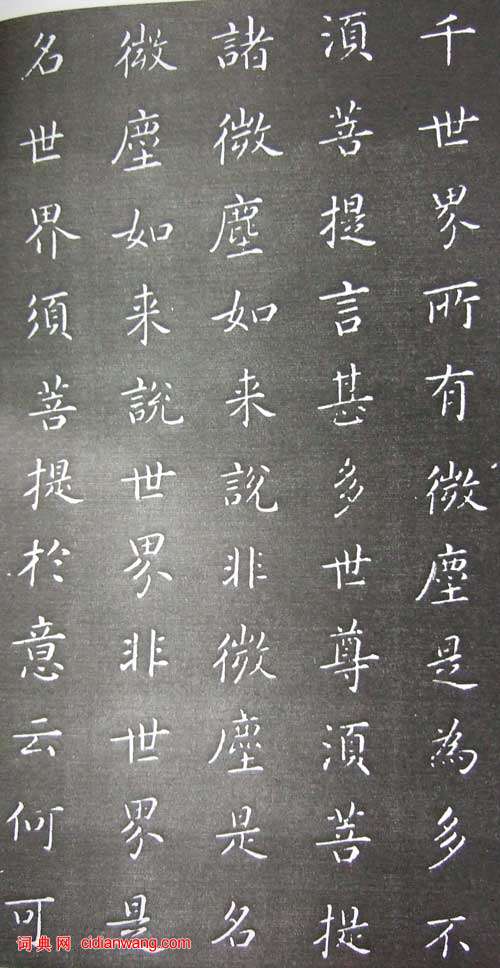 千世界所有微塵是為多不
湏菩提言甚多世尊湏菩提
諸微塵如来說非微塵是名
微塵如来說世界非世界是
名世界須菩提於意云何可
词典网 cidianwang.com